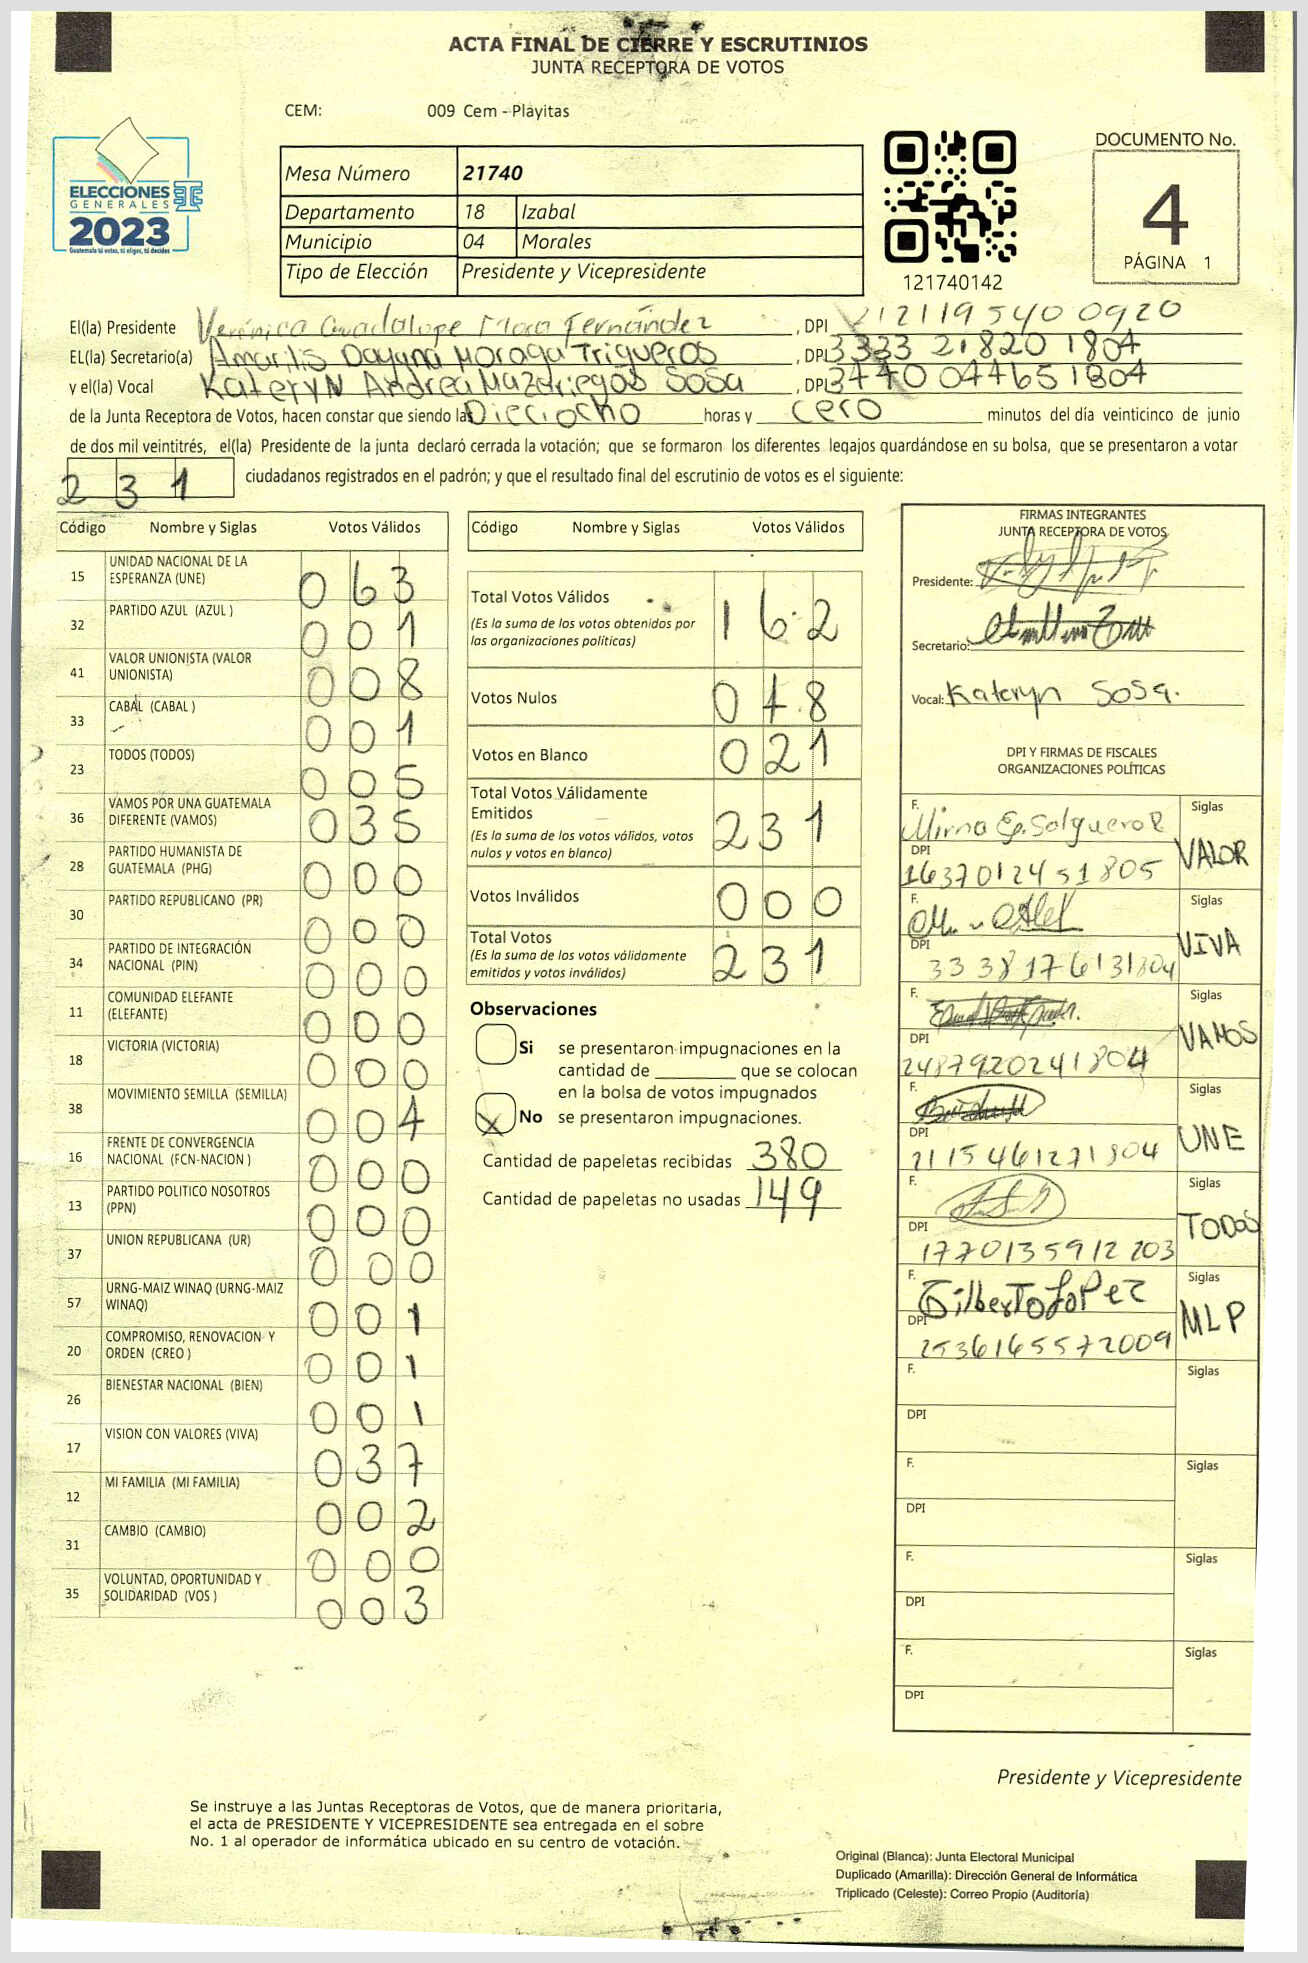 ACTA FINAL DE CIERRE Y ESCRUTINIOS
JUNTA RECEPTORA DE VOTOS
CEM: 009 Cem - Playitas
ELECCIONES
GENERALES
2023
Guatemala tú votas, tú eliges, tú decides
Mesa Número 21740
Departamento 18 Izabal
Municipio 04 Morales
Tipo de Elección Presidente y Vicepresidente
121740142
DOCUMENTO No.
4
PÁGINA 1
El(la) Presidente Verónica Guadalupe Mora Fernández , DPI 2121195400920
EL(la) Secretario(a) Amarilis Dayana Moraga Trigueros , DPI 3333 21820 1804
y el(la) Vocal Kateryn Andrea Mazariegos Sosa , DPI 3440 044651804
de la Junta Receptora de Votos, hacen constar que siendo las Dieciocho horas y cero minutos del día veinticinco de junio
de dos mil veintitrés, el(la) Presidente de la junta declaró cerrada la votación; que se formaron los diferentes legajos guardándose en su bolsa, que se presentaron a votar
231 ciudadanos registrados en el padrón; y que el resultado final del escrutinio de votos es el siguiente:
Código Nombre y Siglas Votos Válidos
15 UNIDAD NACIONAL DE LA ESPERANZA (UNE) 063
32 PARTIDO AZUL (AZUL ) 001
41 VALOR UNIONISTA (VALOR UNIONISTA) 008
33 CABAL (CABAL ) 001
23 TODOS (TODOS) 005
36 VAMOS POR UNA GUATEMALA DIFERENTE (VAMOS) 035
28 PARTIDO HUMANISTA DE GUATEMALA (PHG) 000
30 PARTIDO REPUBLICANO (PR) 000
34 PARTIDO DE INTEGRACIÓN NACIONAL (PIN) 000
11 COMUNIDAD ELEFANTE (ELEFANTE) 000
18 VICTORIA (VICTORIA) 000
38 MOVIMIENTO SEMILLA (SEMILLA) 004
16 FRENTE DE CONVERGENCIA NACIONAL (FCN-NACION ) 000
13 PARTIDO POLITICO NOSOTROS (PPN) 000
37 UNION REPUBLICANA (UR) 000
57 URNG-MAIZ WINAQ (URNG-MAIZ WINAQ) 001
20 COMPROMISO, RENOVACION Y ORDEN (CREO ) 001
26 BIENESTAR NACIONAL (BIEN) 001
17 VISION CON VALORES (VIVA) 037
12 MI FAMILIA (MI FAMILIA) 002
31 CAMBIO (CAMBIO) 000
35 VOLUNTAD, OPORTUNIDAD Y SOLIDARIDAD (VOS ) 003
Código Nombre y Siglas Votos Válidos
Total Votos Válidos 162
(Es la suma de los votos obtenidos por
las organizaciones políticas)
Votos Nulos 048
Votos en Blanco 021
Total Votos Válidamente
Emitidos 231
(Es la suma de los votos válidos, votos
nulos y votos en blanco)
Votos Inválidos 000
Total Votos 231
(Es la suma de los votos válidamente
emitidos y votos inválidos)
Observaciones
Si se presentaron impugnaciones en la
cantidad de ________ que se colocan
en la bolsa de votos impugnados
X No se presentaron impugnaciones.
Cantidad de papeletas recibidas 380
Cantidad de papeletas no usadas 149
FIRMAS INTEGRANTES
JUNTA RECEPTORA DE VOTOS
Presidente:
Secretario:
Vocal: Kateryn Sosa.
DPI Y FIRMAS DE FISCALES
ORGANIZACIONES POLÍTICAS
F. Mirna Ep. Salguero R Siglas
DPI 1637012451805 VALOR
F. Siglas
DPI 3338176131804 VIVA
F. Siglas
DPI 2487920241804 VAMOS
F. Siglas
DPI 2115461271804 UNE
F. Siglas
DPI 1770135912203 TODOS
F. Gilberto LoPez Siglas
DPI 2536165572009 MLP
F. Siglas
DPI
F. Siglas
DPI
F. Siglas
DPI
F. Siglas
DPI
Presidente y Vicepresidente
Se instruye a las Juntas Receptoras de Votos, que de manera prioritaria,
el acta de PRESIDENTE Y VICEPRESIDENTE sea entregada en el sobre
No. 1 al operador de informática ubicado en su centro de votación.
Original (Blanca): Junta Electoral Municipal
Duplicado (Amarilla): Dirección General de Informática
Triplicado (Celeste): Correo Propio (Auditoría)